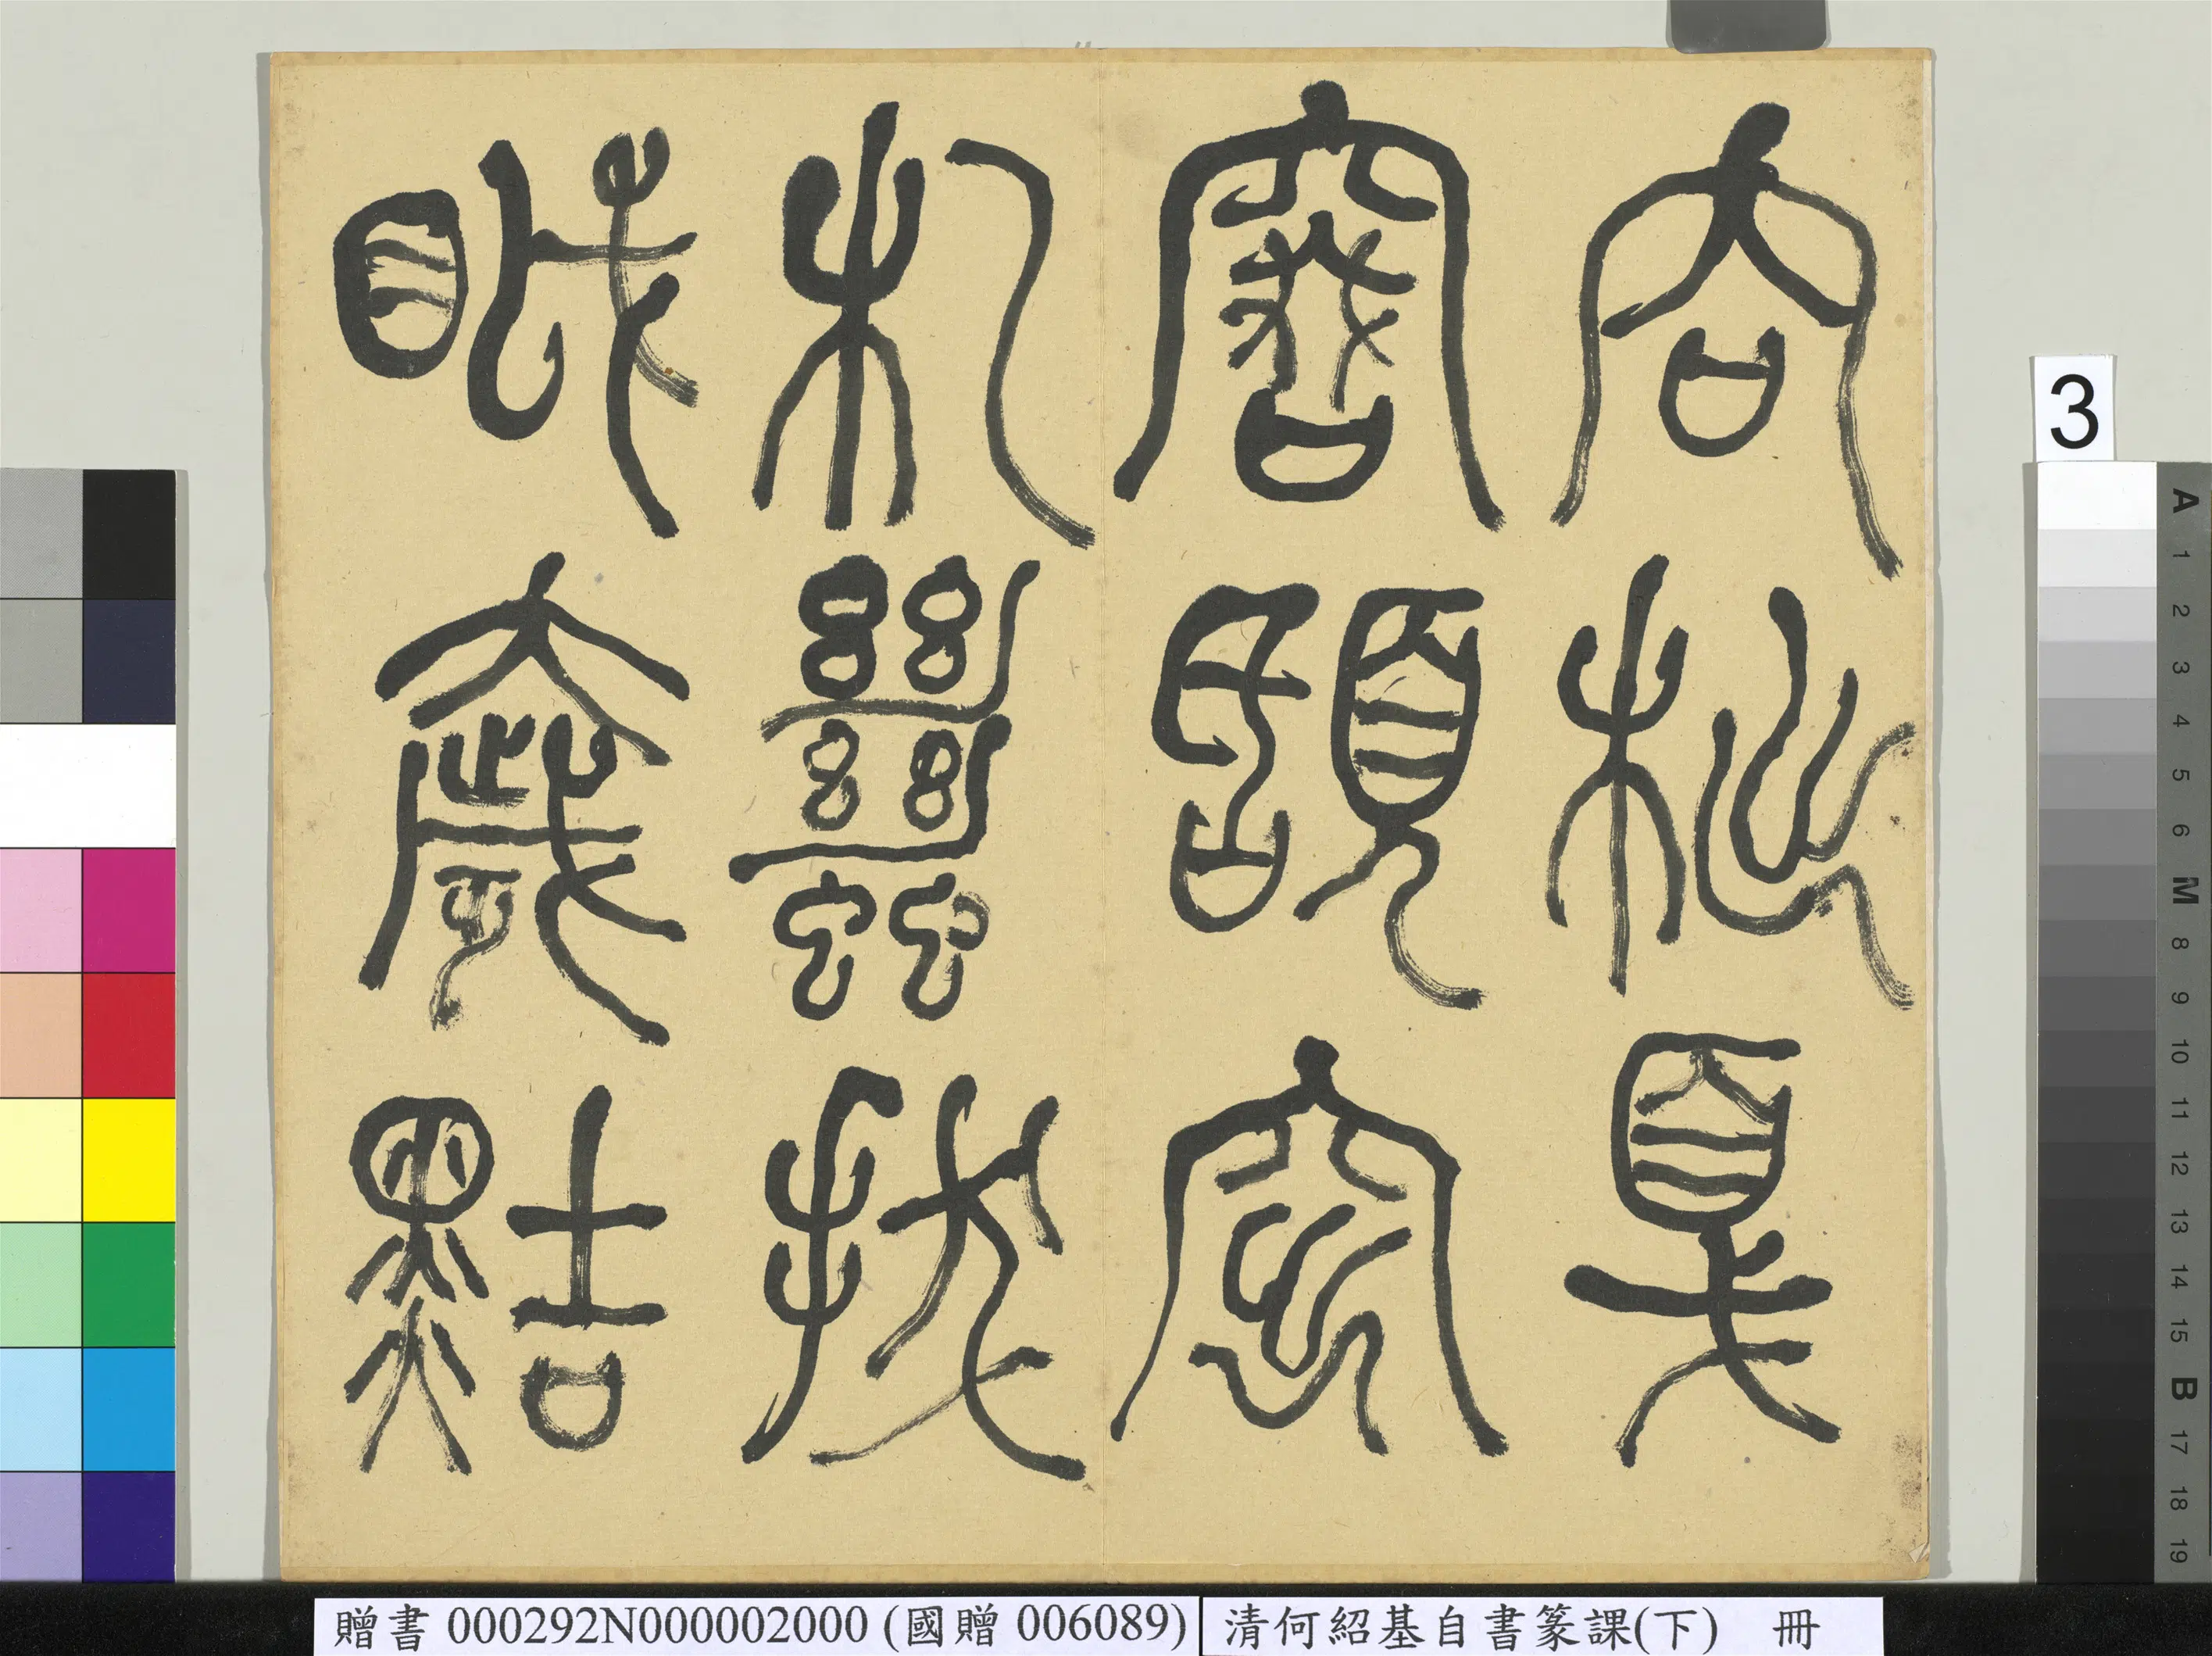 㕯戛
頢
札蠿拔
眓奯黠
3
A 1 2 3 4 5 6 M 8 9 10 11 12 13 14 15 B 17 18 19
贈書 000292N000002000 (國贈 006089)
清何紹基自書篆課(下) 冊